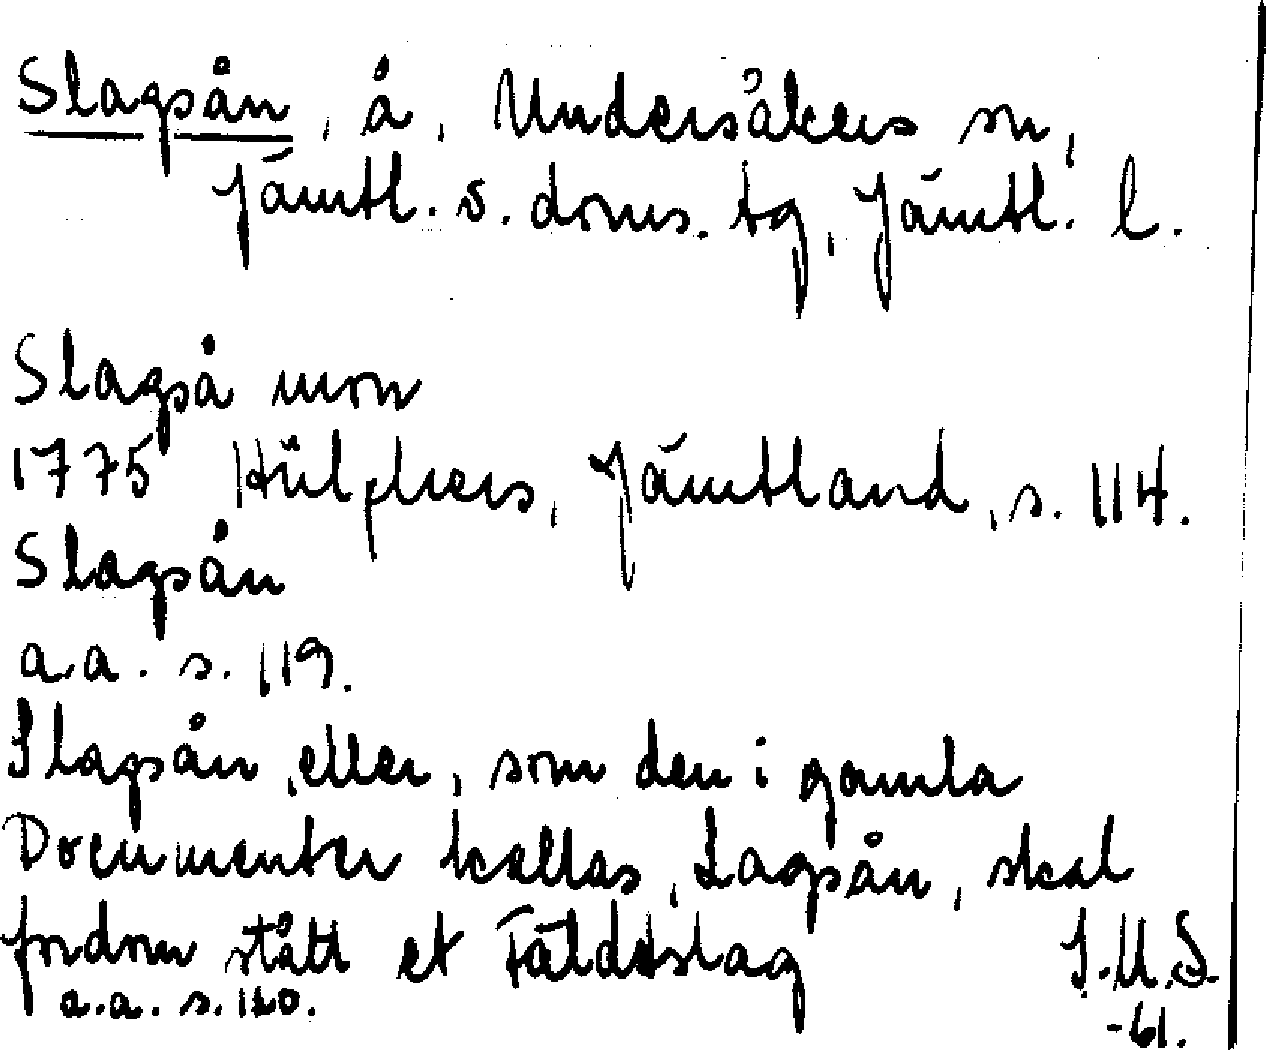 Slagsån, å, Undersåkers sn,
Jämtl. s. doms. tg, Jämtl. l.
Slagså mon
1775 Hülphers, Jämtland, s. 114.
Slagsån
a.a. s. 119.
Slagsån, eller, som den i gamla
Documenter kallas, Lagsån, skal
fordom stått et Fältslag
a.a. s. 120.
S.U.S.
-61.